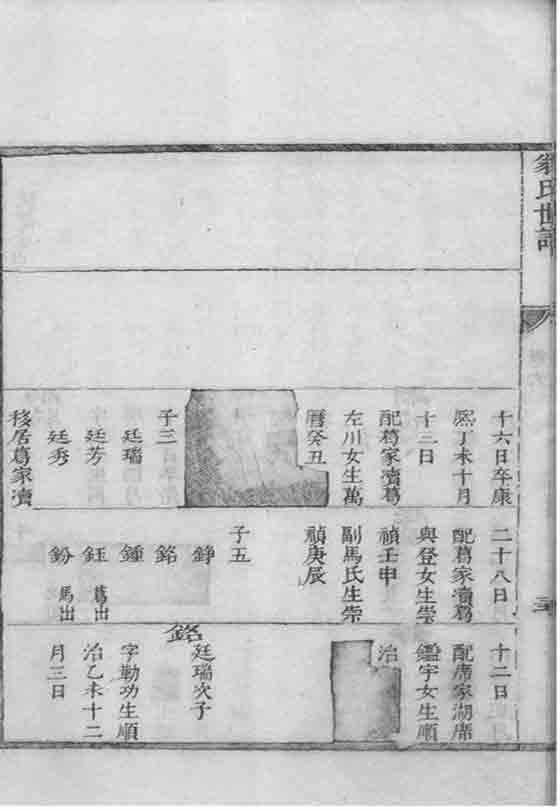 氏世譜
十六日卒康
熙丁未十月
十二日
配葛家瀆葛
左川女生萬
曆癸丑
子三
廷瑞
廷芳
廷秀
移居葛家瀆
二十八日
配葛家瀆葛
與登女生崇
禎壬申
副馬氏生崇
禎庚辰
子五
錚
銘
鍾
鈺 葛出
鈖 馬出
十二日
配席家湖席
鑑宇女生順
治
銘
廷瑞次子
字勒功生順
治乙未十二
月三日